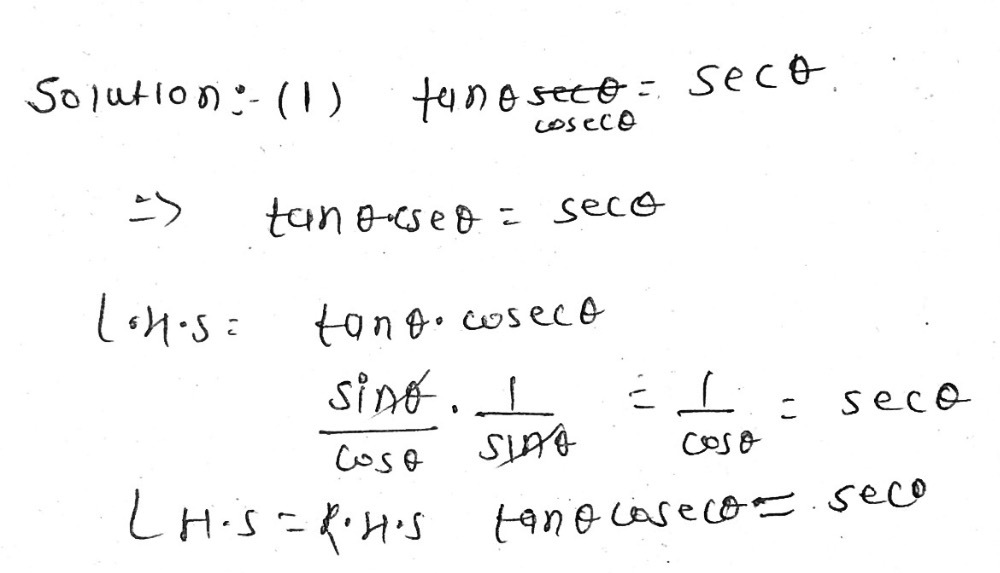 Solution:- (1) tanθ cosecθ = secθ.
=> tanθ·cseθ = secθ
L.H.S = tanθ· cosecθ
sinθ/cosθ · 1/sinθ = 1/cosθ = secθ
LH.S = R.H.S tanθ cosecθ = secθ